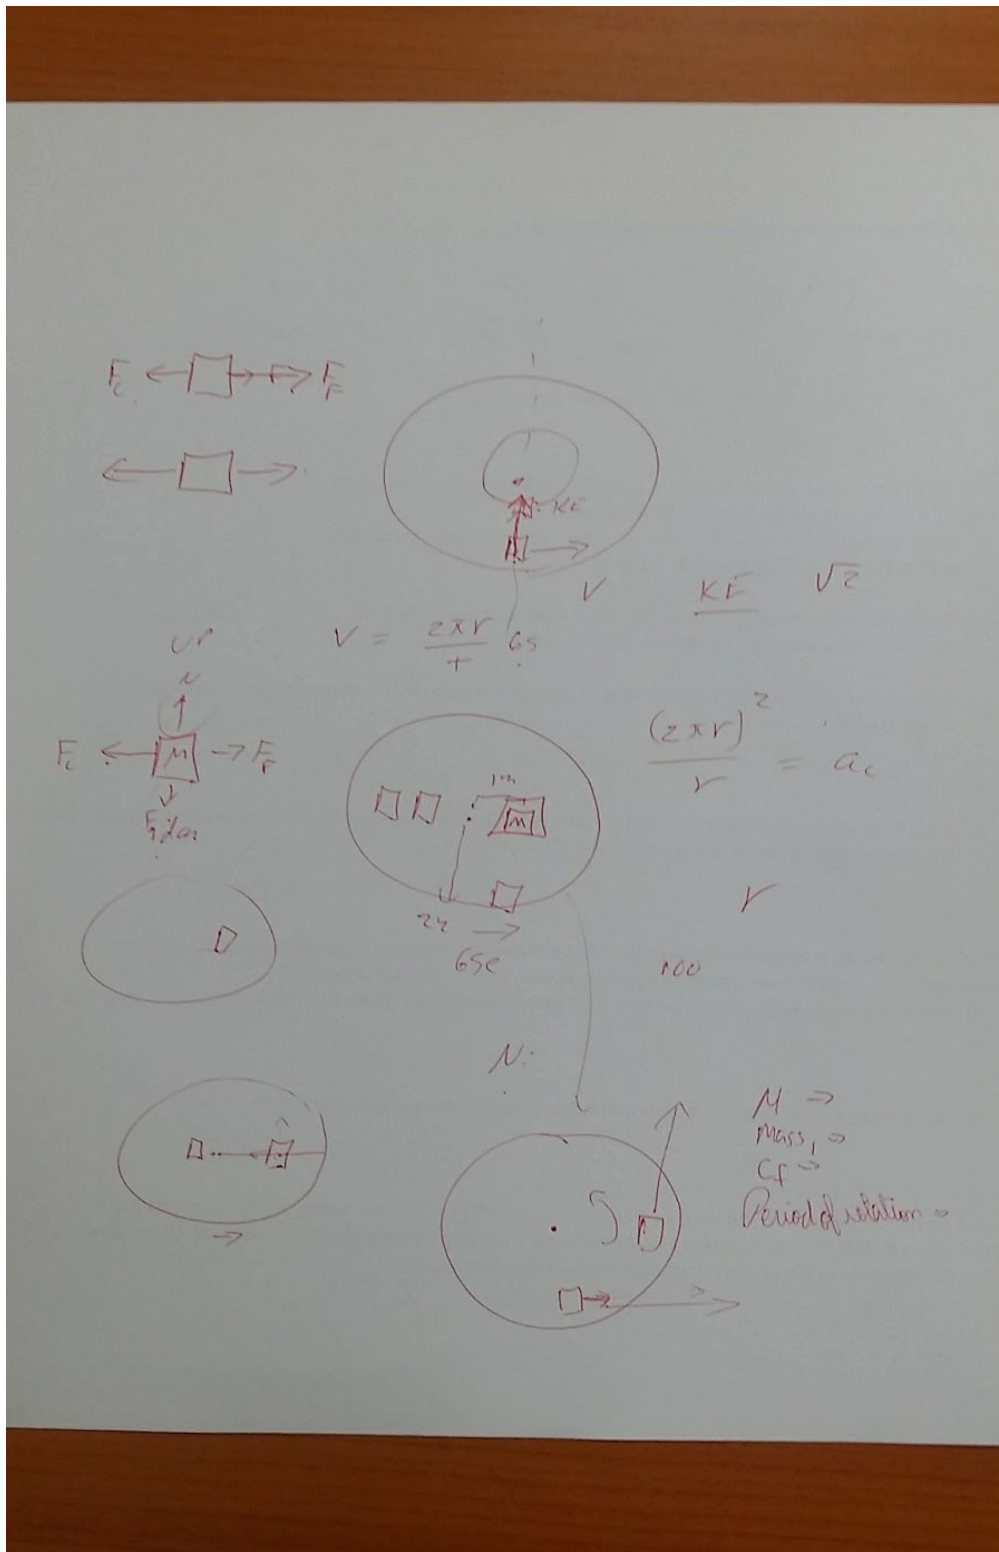 Fc
FF
KE
V
KE √2
V = 2πr / t 6s
UP
N
Fc M FF
(2πr)² / r = ac
1m
M
r
100
N:
M →
Mass, →
Cf →
Period of rotation →